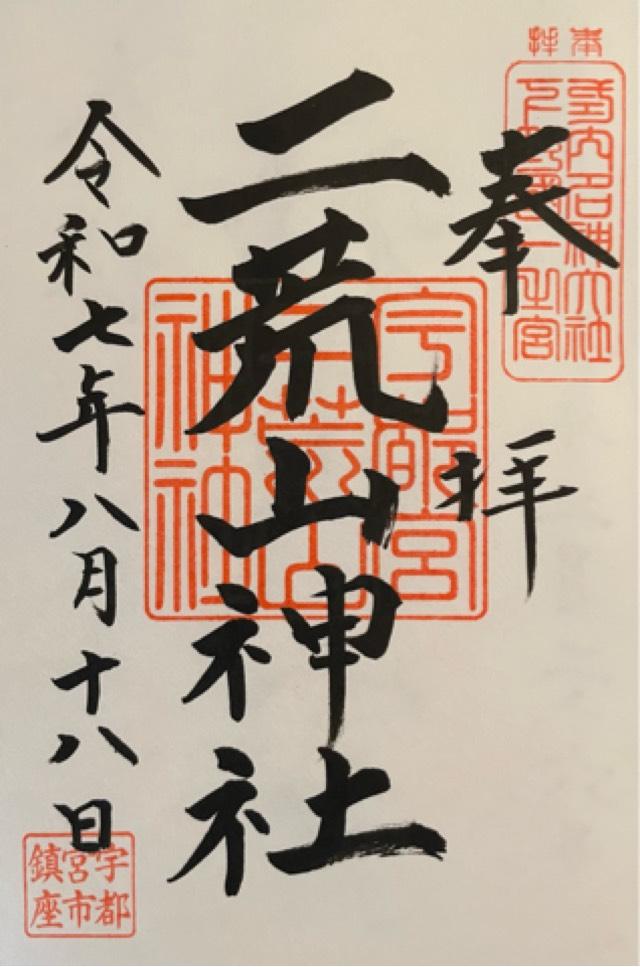 奉拝
式内名神大社
下野國一之宮
奉拝
二荒山神社
宇都宮
二荒山
神社
令和七年八月十八日
宇都
宮市
鎮座